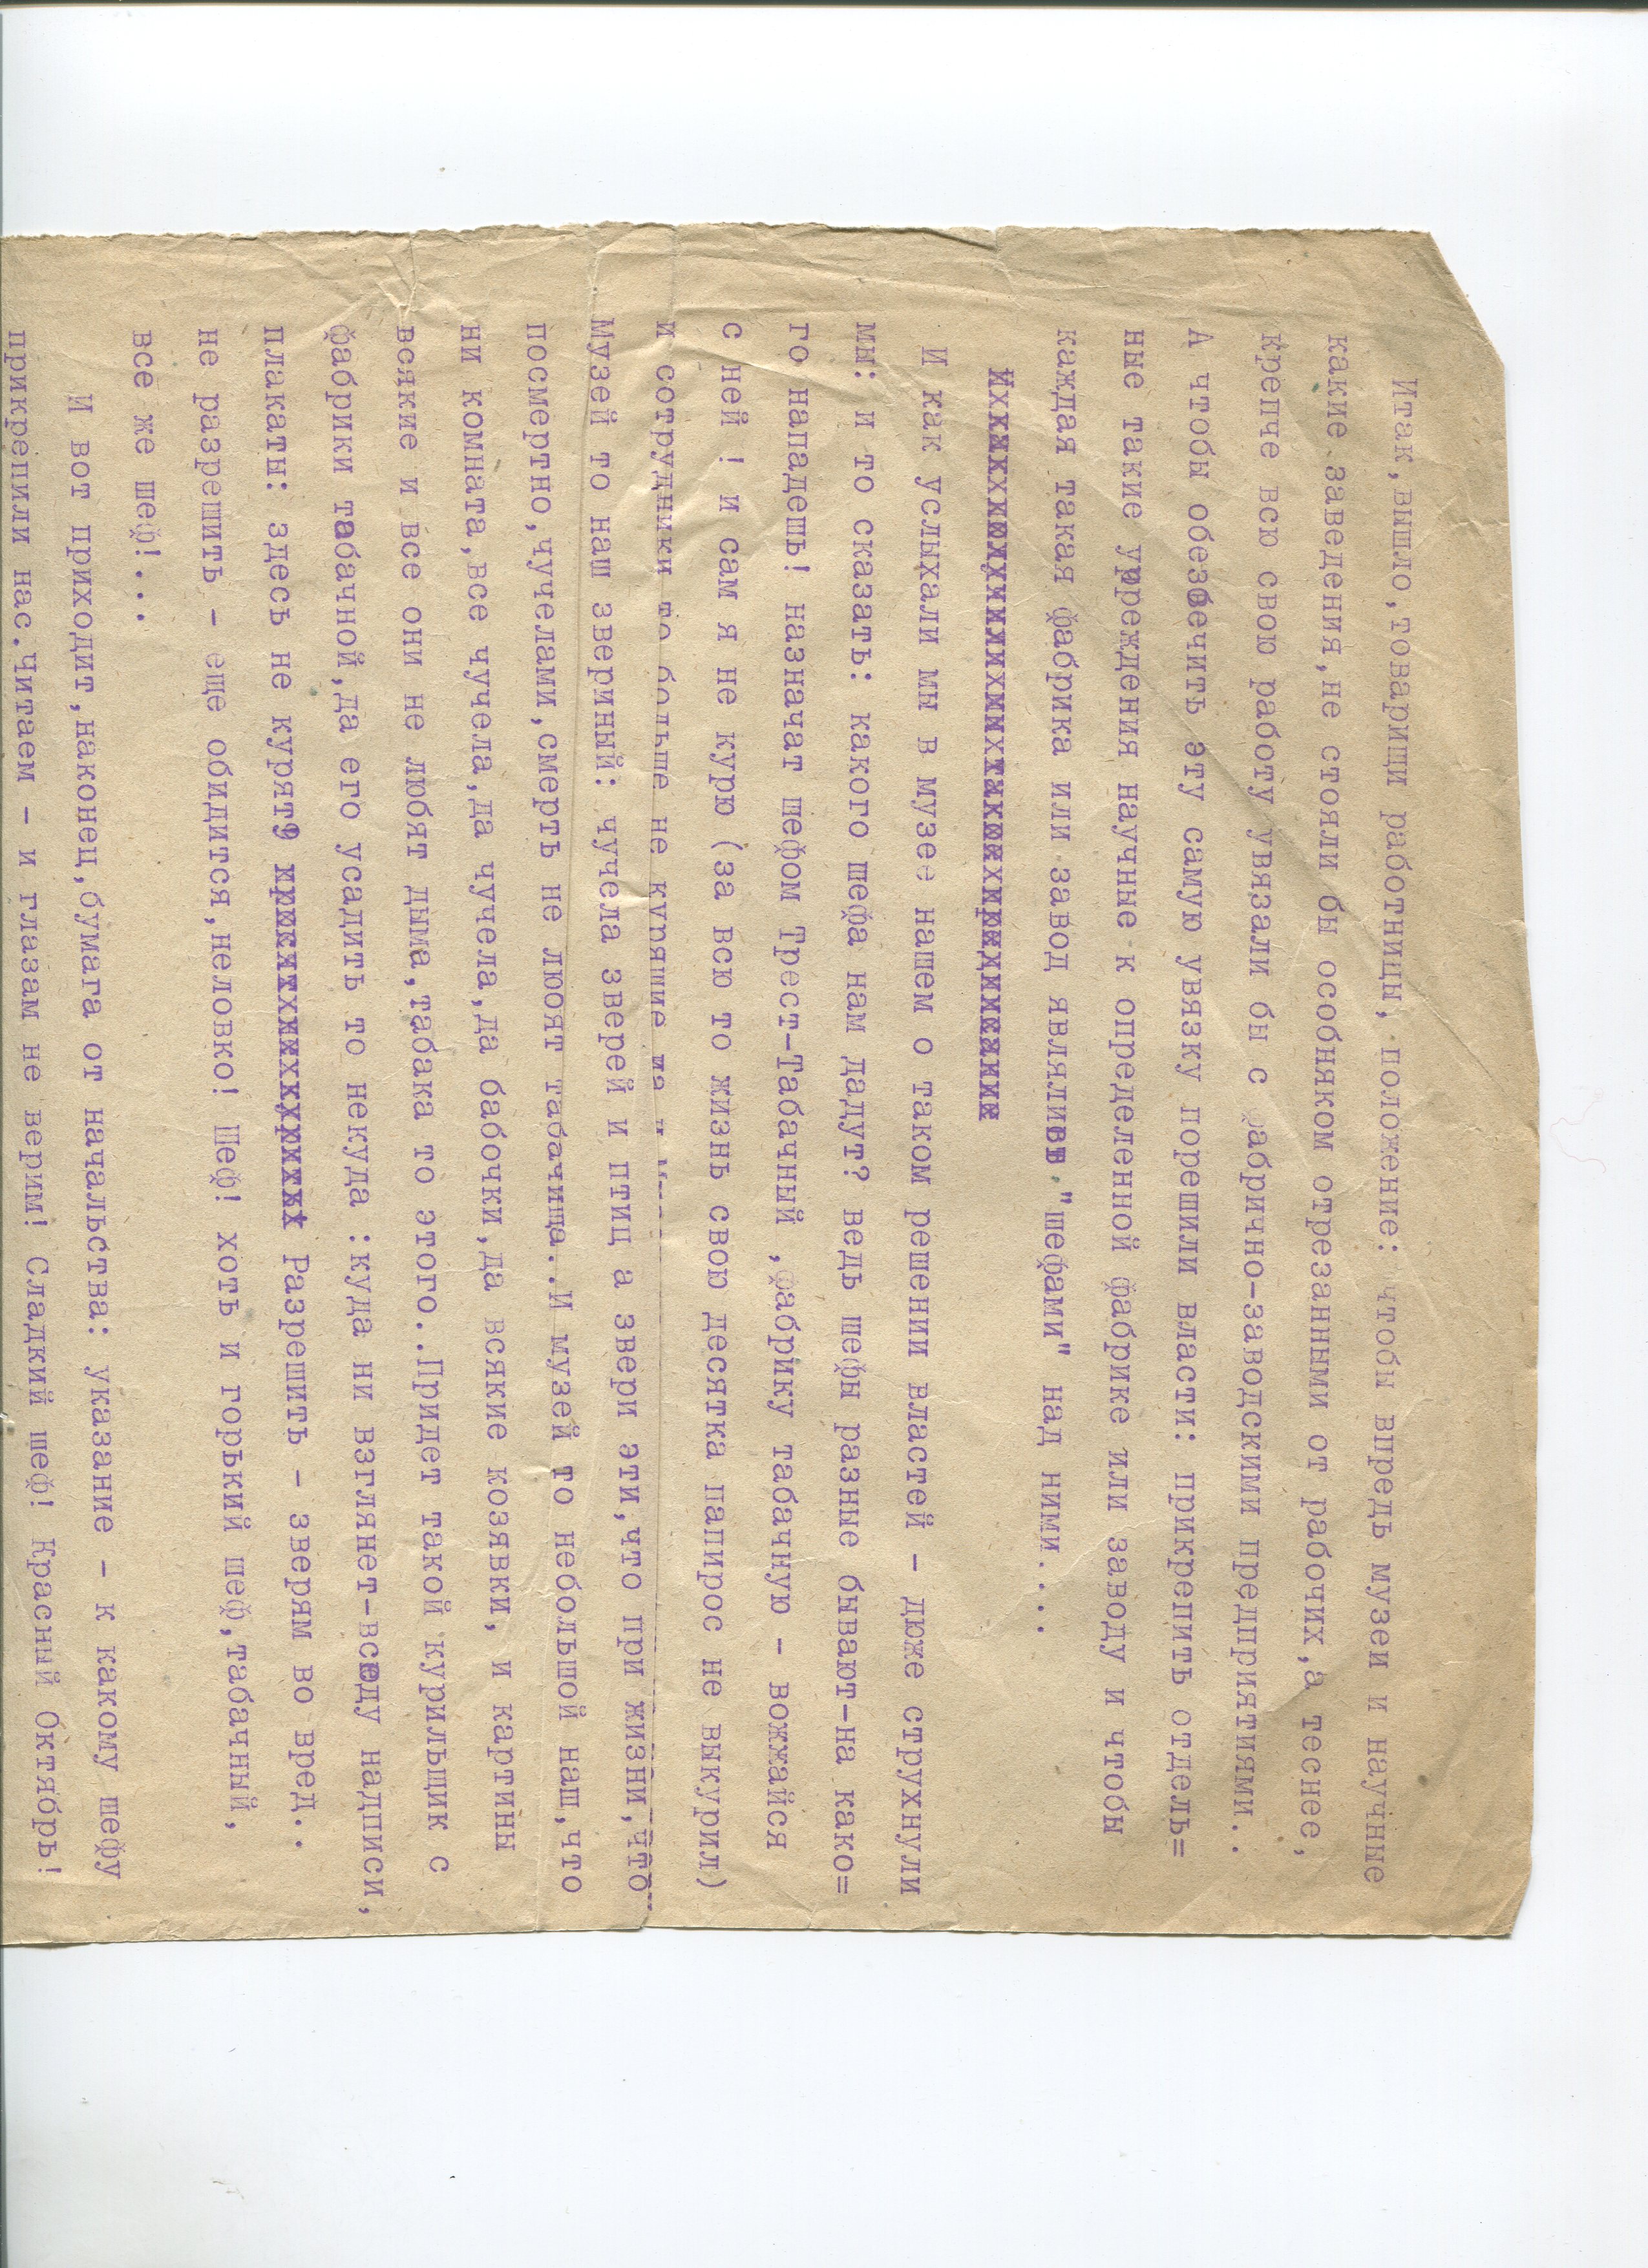 Итак,вышло,товарищи работницы, положение: чтобы впредь музеи и научные
какие заведения,не стояли бы особняком отрезанными от рабочих,а теснее,
крепче всю свою работу увязали бы с фабрично-заводскими предприятиями..
А чтобы обезбечить эту самую увязку порешили власти: прикрепить отдель=
ные такие уреждения научные к определенной фабрике или заводу и чтобы
каждая такая фабрика или завод являлись "шефами" над ними....
И как услыхали мы в музее нашем о таком решении властей - дюже струхнули
мы: и то сказать: какого шефа нам дадут? ведь шефы разные бывают-на како=
го нападешь! назначат шефом Трест-Табачный ,фабрику табачную - вожжайся
с ней ! и сам я не курю (за всю то жизнь свою десятка папирос не выкурил)
и сотрудники то больше не курящие
Музей то наш звериный: чучела зверей и птиц а звери эти,что при жизни,что
посмертно,чучелами,смерть не люоят табачища..И музей то небольшой наш,что
ни комната,все чучела,да чучела,да бабочки,да всякие козявки, и картины
всякие и все они не любят дыма,табака то этого..Придет такой курильщик с
фабрики табачной,да его усадить то некуда :куда ни взглянет-всюду надписи,
плакаты: здесь не курят9 Разрешить - зверям во вред..
не разрешить - еще обидится,неловко! Шеф! хоть и горький шеф,табачный,
все же шеф!...
И вот приходит,наконец,бумага от начальства: указание - к какому шефу
прикрепили нас.Читаем - и глазам не верим! Сладкий шеф! Красный Октябрь!